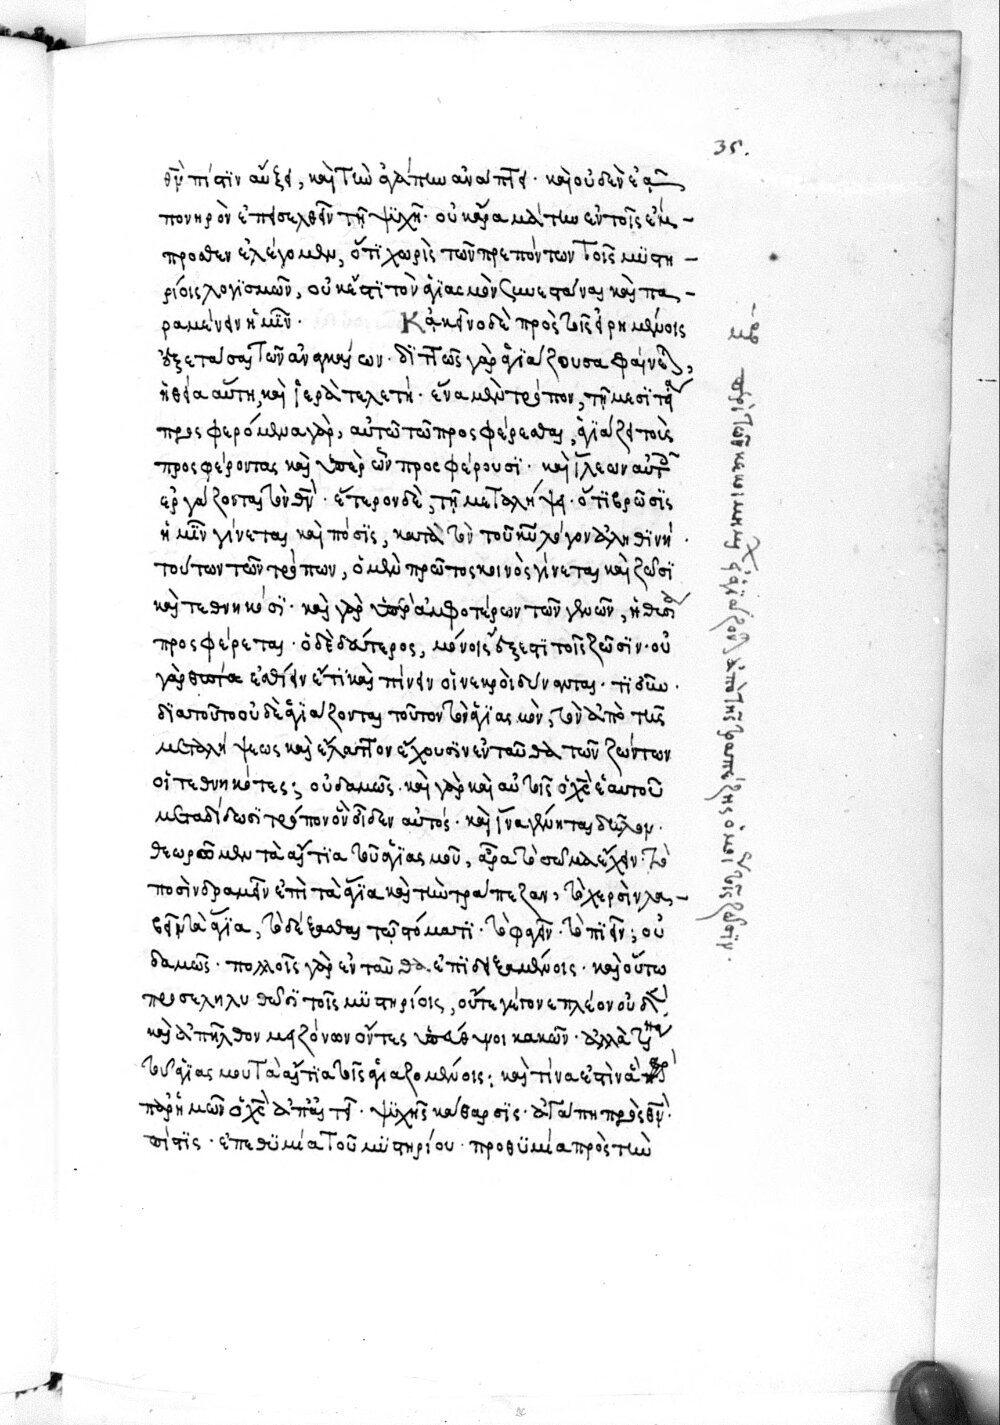 35.
θν πίστιν αὔξει, καὶ τὴν ἀγάπην ἀνάπτει· καὶ οὐδὲν ἐᾷ
πονηρὸν ἐπεισελθεῖν τῇ ψυχῇ· οὐκ ἄρα μάτην ἐν τοῖς ἔμ-
προσθεν ἐλέγομεν, ὅτι χωρὶς τῶν πρεπόντων τοῖς μυστη-
ρίοις λογισμῶν, οὐκ ἔστι τὸν ἁγιασμὸν καὶ πα-
ραμένειν ἡμῖν· Κἀκεῖνο δὲ πρὸς τοῖς εἰρημένοις
ἐξετάσαι τῶν ἀναγκαίων· διττῶς γὰρ ἁγιάζουσα φαίνεται,
ἡ θεία αὕτη, καὶ ἱερὰ τελετή· ἕνα μὲν τρόπον, τῇ μεσιτείᾳ
προσφερόμενα γὰρ, αὐτῷ τῷ προσφέρεσθαι, ἁγιάζει τοὺς
προσφέροντας καὶ ὑπὲρ ὧν προσφέρουσι· καὶ ἵλεων αὐτοῖς
ἐργάζονται τὸν θν· ἕτερον δὲ, τῇ μεταλήψει· ὅτι βρῶσις
ἡμῖν γίνεται καὶ πόσις, κατὰ τὸν τοῦ κυ λόγον ἀληθινή·
τούτων τῶν τρόπων, ὁ μὲν πρῶτος κοινὸς γίνεται καὶ ζῶσι
καὶ τεθνηκόσι· καὶ γὰρ ὑπὲρ ἀμφοτέρων τῶν γενῶν, ἡ θυσία
προσφέρεται· ὁ δὲ δεύτερος, μόνοις ἔξεστι τοῖς ζῶσιν· οὐ
γὰρ ἐσθίειν ἔτι καὶ πίνειν οἱ νεκροὶ δύνανται· τί οὖν·
διατοῦτο οὐδὲ ἁγιάζονται τοῦτον τὸν ἁγιασμὸν, τὸν ἀπὸ τῆς
μεταλήψεως καὶ ἔλαττον ἔχουσιν ἐνταῦθα τῶν ζώντων
οἱ τεθνηκότες; οὐδαμῶς· καὶ γὰρ καὶ αὐτοῖς ὁ χς ἑαυτοῦ
μεταδίδωσι τρόπον ὃν οἶδεν αὐτός· καὶ ἵνα γένηται δῆλον·
θεωρῶμεν τὰ αἴτια τοῦ ἁγιασμοῦ, ἆρα τὸ σῶμα ἔχειν· τὸ
ποσὶν δραμεῖν ἐπὶ τὰ ἅγια καὶ τὴν τράπεζαν, τὸ χερσὶν λα-
βεῖν τὰ ἅγια, τὸ δέξασθαι τῷ στόματι· τὸ φαγεῖν· τὸ πιεῖν; οὐ
δαμῶς· πολλοῖς γὰρ ἐνταῦθα ἐπιδειξαμένοις· καὶ οὕτω
προσεληλυθόσι τοῖς μυστηρίοις, οὔτε γέγονε πλέον οὐδὲν,
καὶ ἀπῆλθον μειζόνων ὄντες ὑπεύθυνοι κακῶν· ἀλλὰ τίνα
τοῦ ἁγιασμοῦ τὰ αἴτια τοῖς ἁγιαζομένοις; καὶ τίνα ἐστὶν ἃ
παρ' ἡμῶν ὁ χς ἀπαιτεῖ· ψυχῆς κάθαρσις· ἀγάπη πρὸς θν·
πίστις· ἐπιθυμία τοῦ μυστηρίου· προθυμία πρὸς τὴν